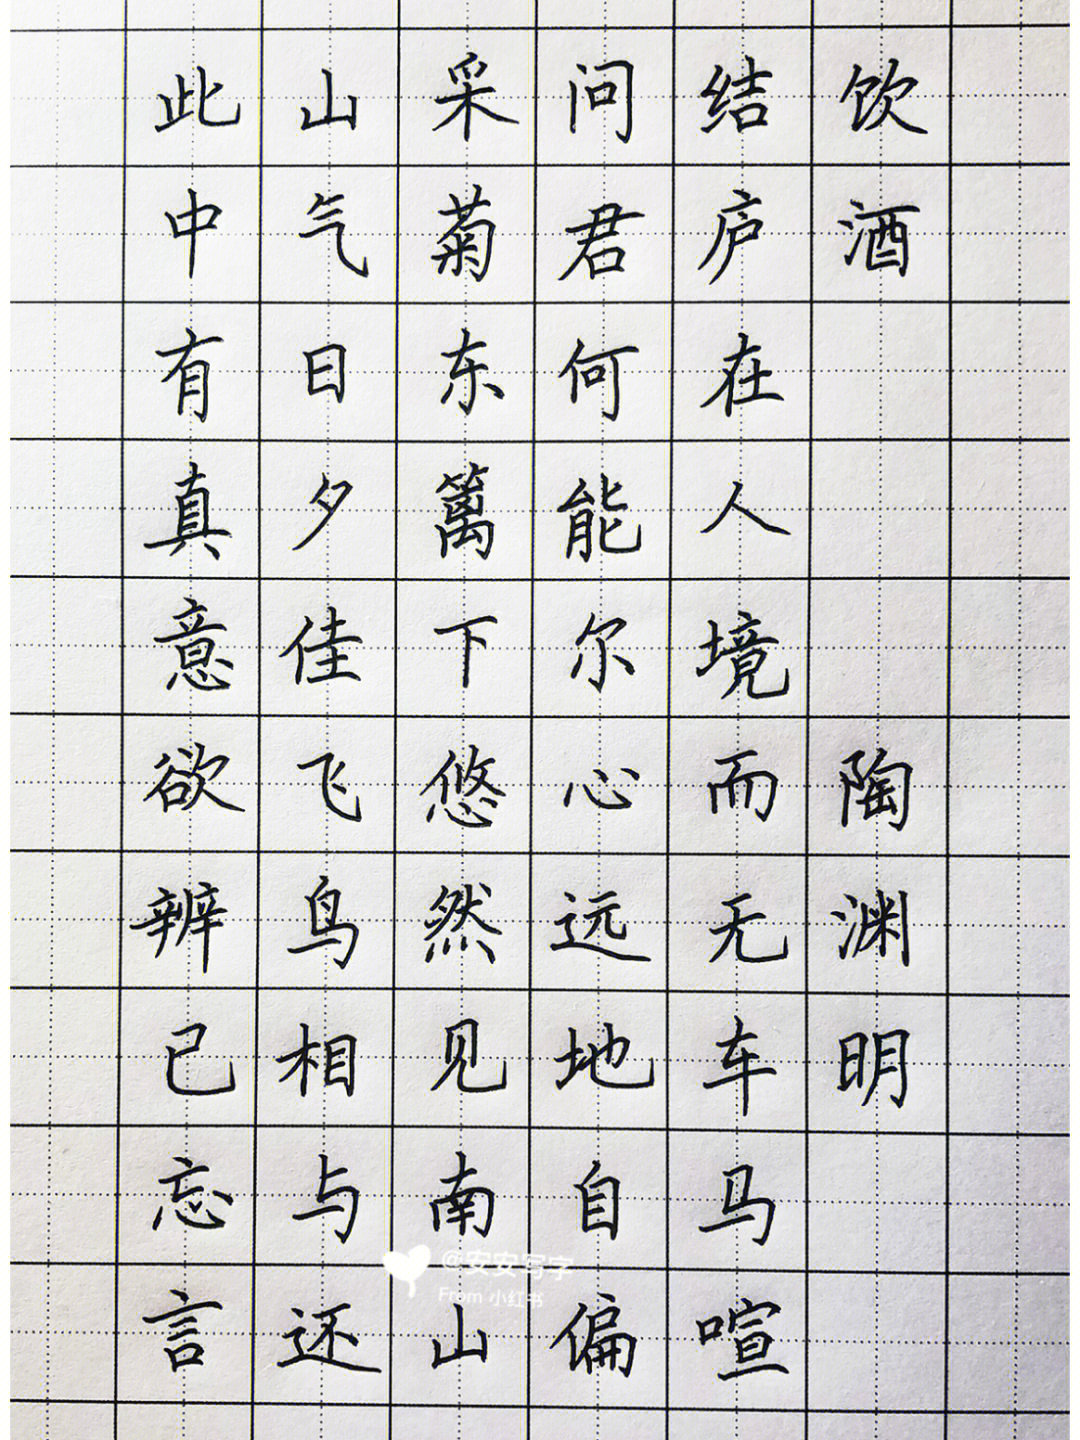 饮酒 陶渊明
结庐在人境而无车马喧
问君何能尔心远地自偏
采菊东篱下悠然见南山
山气日夕佳飞鸟相与还
此中有真意欲辨已忘言
@安安写字
From 小红书